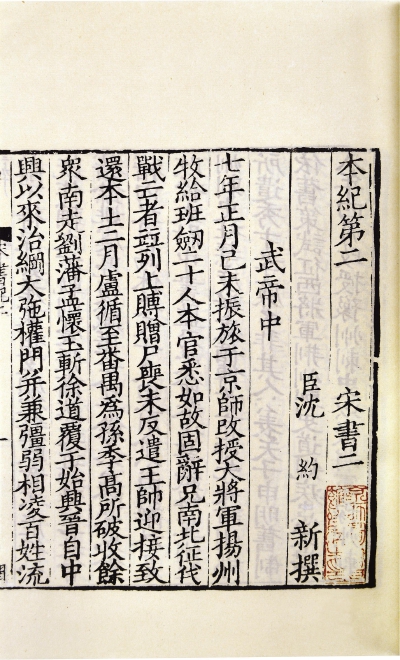 本紀第二 宋書二
臣沈 約 新撰
武帝中
七年正月己未振旅于京師改授大將軍揚州
牧給班劒二十人本官悉如故固辭凡南北征伐
戰亡者竝列上賻贈尸喪未反遣主帥迎接致
還本土二月盧循至番禺爲孫季高所破收餘
衆南走劉藩孟懷玉斬徐道覆于始興晉自中
興以來治綱大弛權門并兼彊弱相凌百姓流